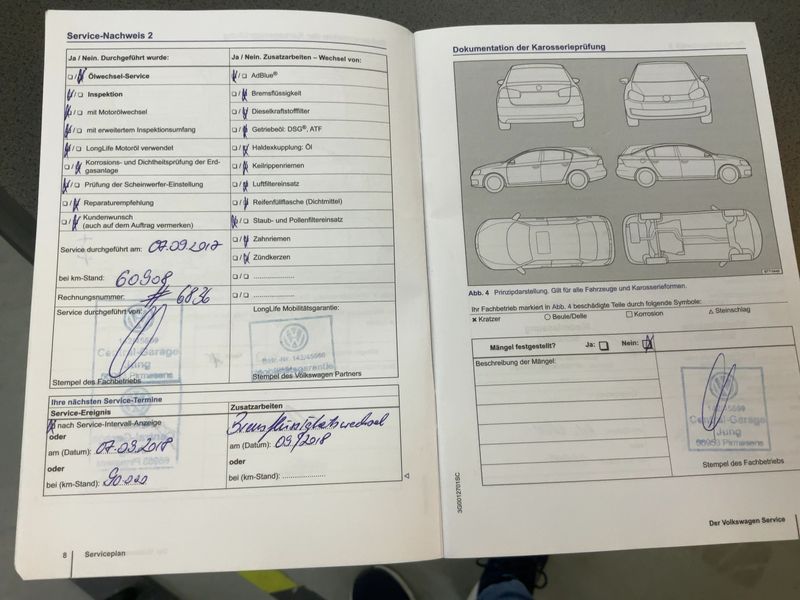 Service-Nachweis 2
Ja / Nein. Durchgeführt wurde:
❏ / ❏ Ölwechsel-Service
❏ / ❏ Inspektion
❏ / ❏ mit Motorölwechsel
❏ / ❏ mit erweitertem Inspektionsumfang
❏ / ❏ LongLife Motoröl verwendet
❏ / ❏ Korrosions- und Dichtheitsprüfung der Erd-
gasanlage
❏ / ❏ Prüfung der Scheinwerfer-Einstellung
❏ / ❏ Reparaturempfehlung
❏ / ❏ Kundenwunsch
(auch auf dem Auftrag vermerken)
Service durchgeführt am: 07.09.2017
bei km-Stand: 60908
Rechnungsnummer: # 6836
Service durchgeführt von:
Central-Garage
Jung
Pirmasens
Stempel des Fachbetriebs
Ja / Nein. Zusatzarbeiten – Wechsel von:
❏ / ❏ AdBlue®
❏ / ❏ Bremsflüssigkeit
❏ / ❏ Dieselkraftstofffilter
❏ / ❏ Getriebeöl: DSG®, ATF
❏ / ❏ Haldexkupplung: Öl
❏ / ❏ Keilrippenriemen
❏ / ❏ Luftfiltereinsatz
❏ / ❏ Reifenfüllflasche (Dichtmittel)
❏ / ❏ Staub- und Pollenfiltereinsatz
❏ / ❏ Zahnriemen
❏ / ❏ Zündkerzen
❏ / ❏ ....................
❏ / ❏ ....................
LongLife Mobilitätsgarantie:
Mobilitätsgarantie
Stempel des Volkswagen Partners
Ihre nächsten Service-Termine
Service-Ereignis
nach Service-Intervall-Anzeige
oder
am (Datum): 07.09.2018
oder
bei (km-Stand): 90.000
Zusatzarbeiten
Bremsflüssigkeitswechsel
am (Datum): 09/2018
oder
bei (km-Stand): ....................
8 Serviceplan
Dokumentation der Karosserieprüfung
Abb. 4 Prinzipdarstellung. Gilt für alle Fahrzeuge und Karosserieformen.
Ihr Fachbetrieb markiert in Abb. 4 beschädigte Teile durch folgende Symbole:
✕ Kratzer ○ Beule/Delle □ Korrosion △ Steinschlag
Mängel festgestellt? Ja: ❏ Nein: ❏
Beschreibung der Mängel:
Central-Garage
Jung
66953 Pirmasens
Stempel des Fachbetriebs
3G0012701SC
Der Volkswagen Service